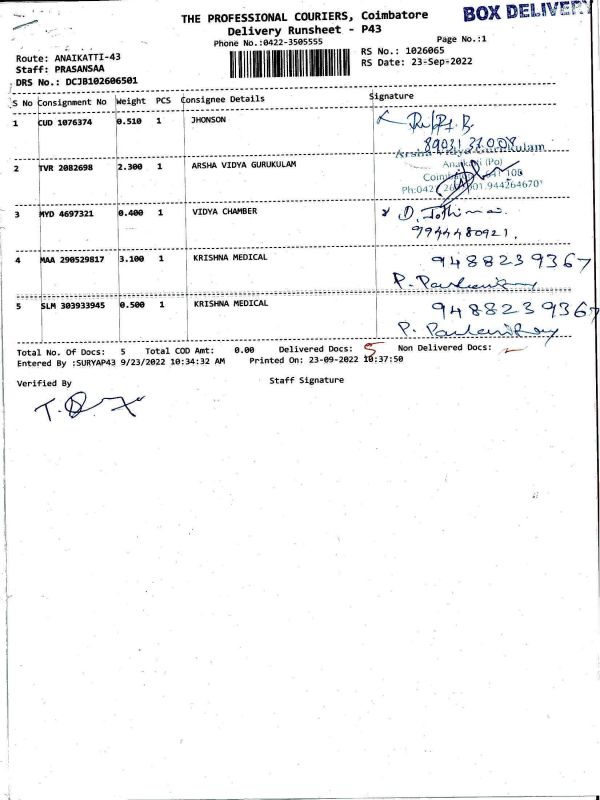 BOX DELIVERY
THE PROFESSIONAL COURIERS, Coimbatore
Delivery Runsheet - P43
Phone No.:0422-3505555
Page No.:1
Route: ANAIKATTI-43
RS No.: 1026065
Staff: PRASANSAA
RS Date: 23-Sep-2022
DRS No.: DCJB102606501
S No Consignment No Weight PCS Consignee Details Signature
1 CUD 1076374 0.510 1 JHONSON
89031 37008
Arsha Vidya Gurukulam
2 TVR 2082698 2.300 1 ARSHA VIDYA GURUKULAM
Anaikatti (Po)
3 MYD 4697321 0.400 1 VIDYA CHAMBER
9944480921.
4 MAA 290529817 3.100 1 KRISHNA MEDICAL 9488239367
5 SLM 303933945 0.500 1 KRISHNA MEDICAL 9488239367
Total No. Of Docs: 5 Total COD Amt: 0.00 Delivered Docs: 5 Non Delivered Docs:
Entered By :SURYAP43 9/23/2022 10:34:32 AM Printed On: 23-09-2022 10:37:50
Verified By Staff Signature